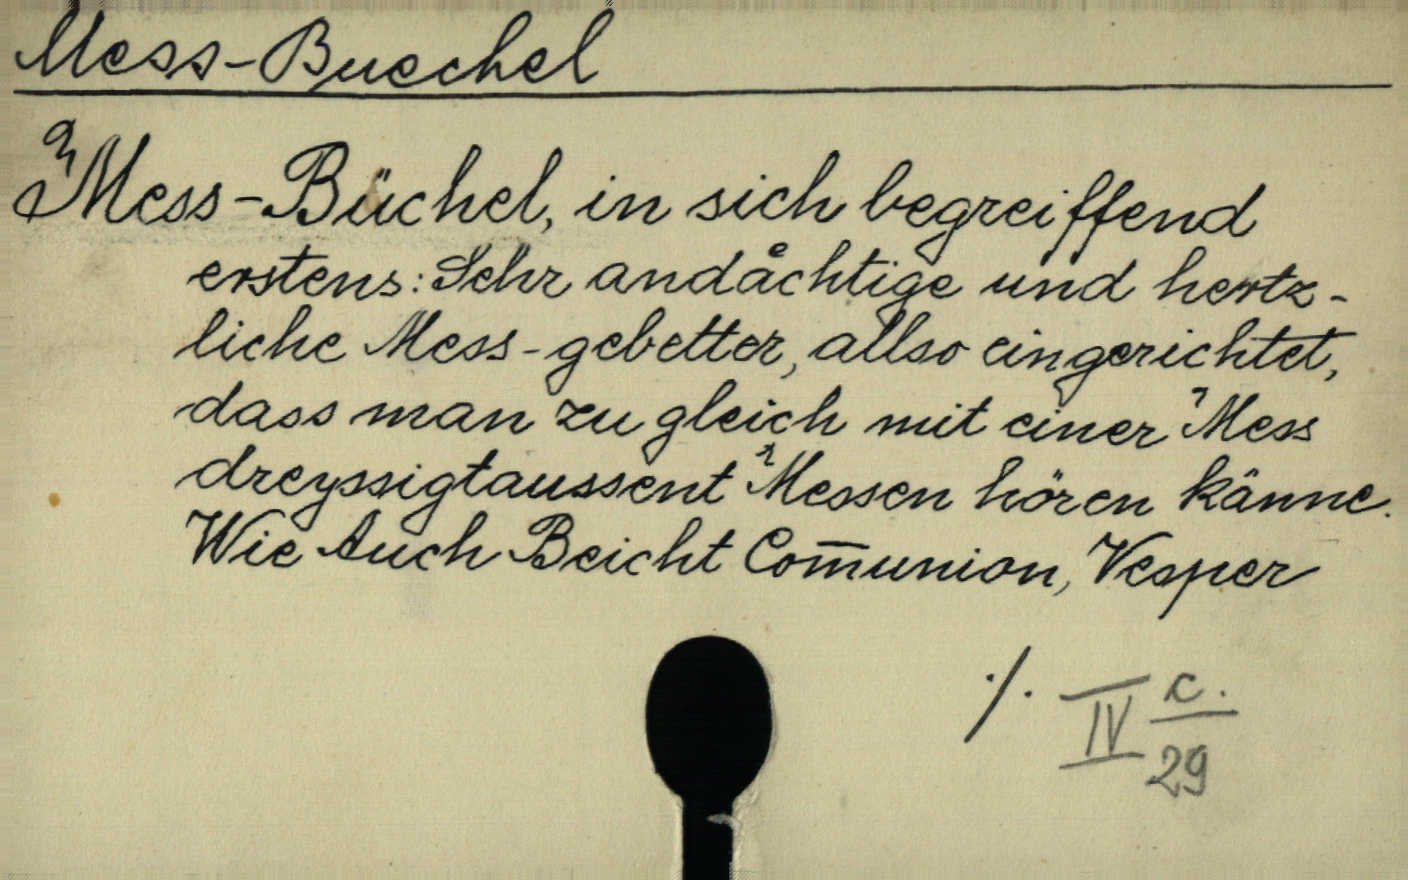 Mess-Buechel
Mess-Büchel, in sich begreiffend
erstens: Sehr andåchtige und hertz-
liche Mess-gebetter, allso eingerichtet,
dass man zu gleich mit einer Mess
dreyssigtaussent Messen hören känne.
Wie Auch Beicht Com̅union, Vesper
./. IV c.
29